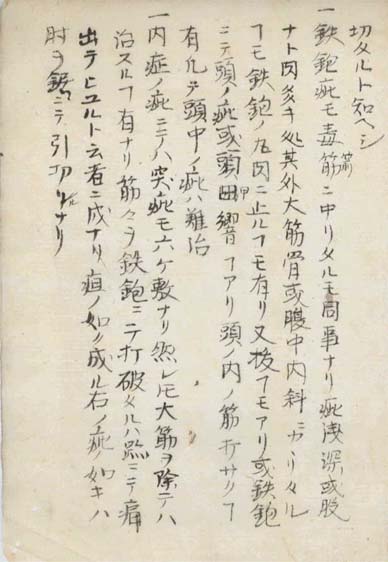 切タルト知ヘシ
一鉄鉋疵モ毒筋ニ中リタルモ同事ナリ疵浅深或股
ナト肉多キ処其外大筋骨或腹中内斜ニカヽリタル
ヿモ鉄鉋ノ丸肉ニ止ルヿモ有リ又抜ヿモアリ或鉄鉋
ニテ頭ノ疵或頭ノ響ヿアリ頭ノ内ノ筋
有ルテ頭中ノ疵ハ難治
一内症ノ疵ニテハ突疵モ六ケ敷ナリ然レ𪜈大筋ヲ除テハ
治スルヿ有ナリ筋々ヲ鉄鉋ミニテ打破タルハニテ痛
出テヒユルト云者ニ成ナリ疽ノ如ク成ル右ノ疵ノ如キハ
肘ヲ鋸ニテ引切ルナリ